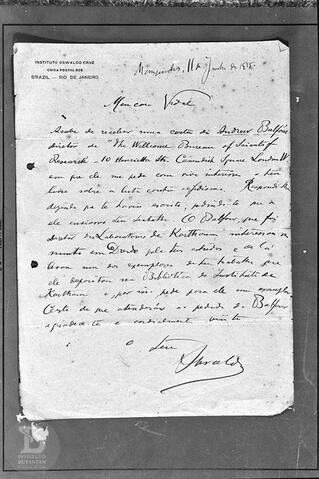 INSTITUTO OSWALDO CRUZ
CAIXA POSTAL 926
BRAZIL — RIO DE JANEIRO
Manguinhos, 11 de Junho de
Meu caro Vidal
Acabo de receber uma carta de Andrew Balfour
director de "The Wellcome Bureau of Scientific
Research 10 Henrietta Str. Cavendish Square London W.
em que ele me pede com vivo interesse o teu
livro sobre a luta contra ofidismo. Respondi-lhe
dizendo que te havia escrito, pedindo-te que
ele enviasse um exemplar. O Balfour, que foi
director dos Laboratorios de Karthoum interessou-se
muito em pelos teus estudos e de lá
levou um dos exemplares do teu trabalho que
ele depositou na Bibliotheca do Instituto de
Karthoum e por isso pede para ele um exemplar
Certo de que atenderás ao pedido do Balfour
agradece-te e cordialmente
o
Teu
Oswaldo
INSTITUTO
BUTANTAN